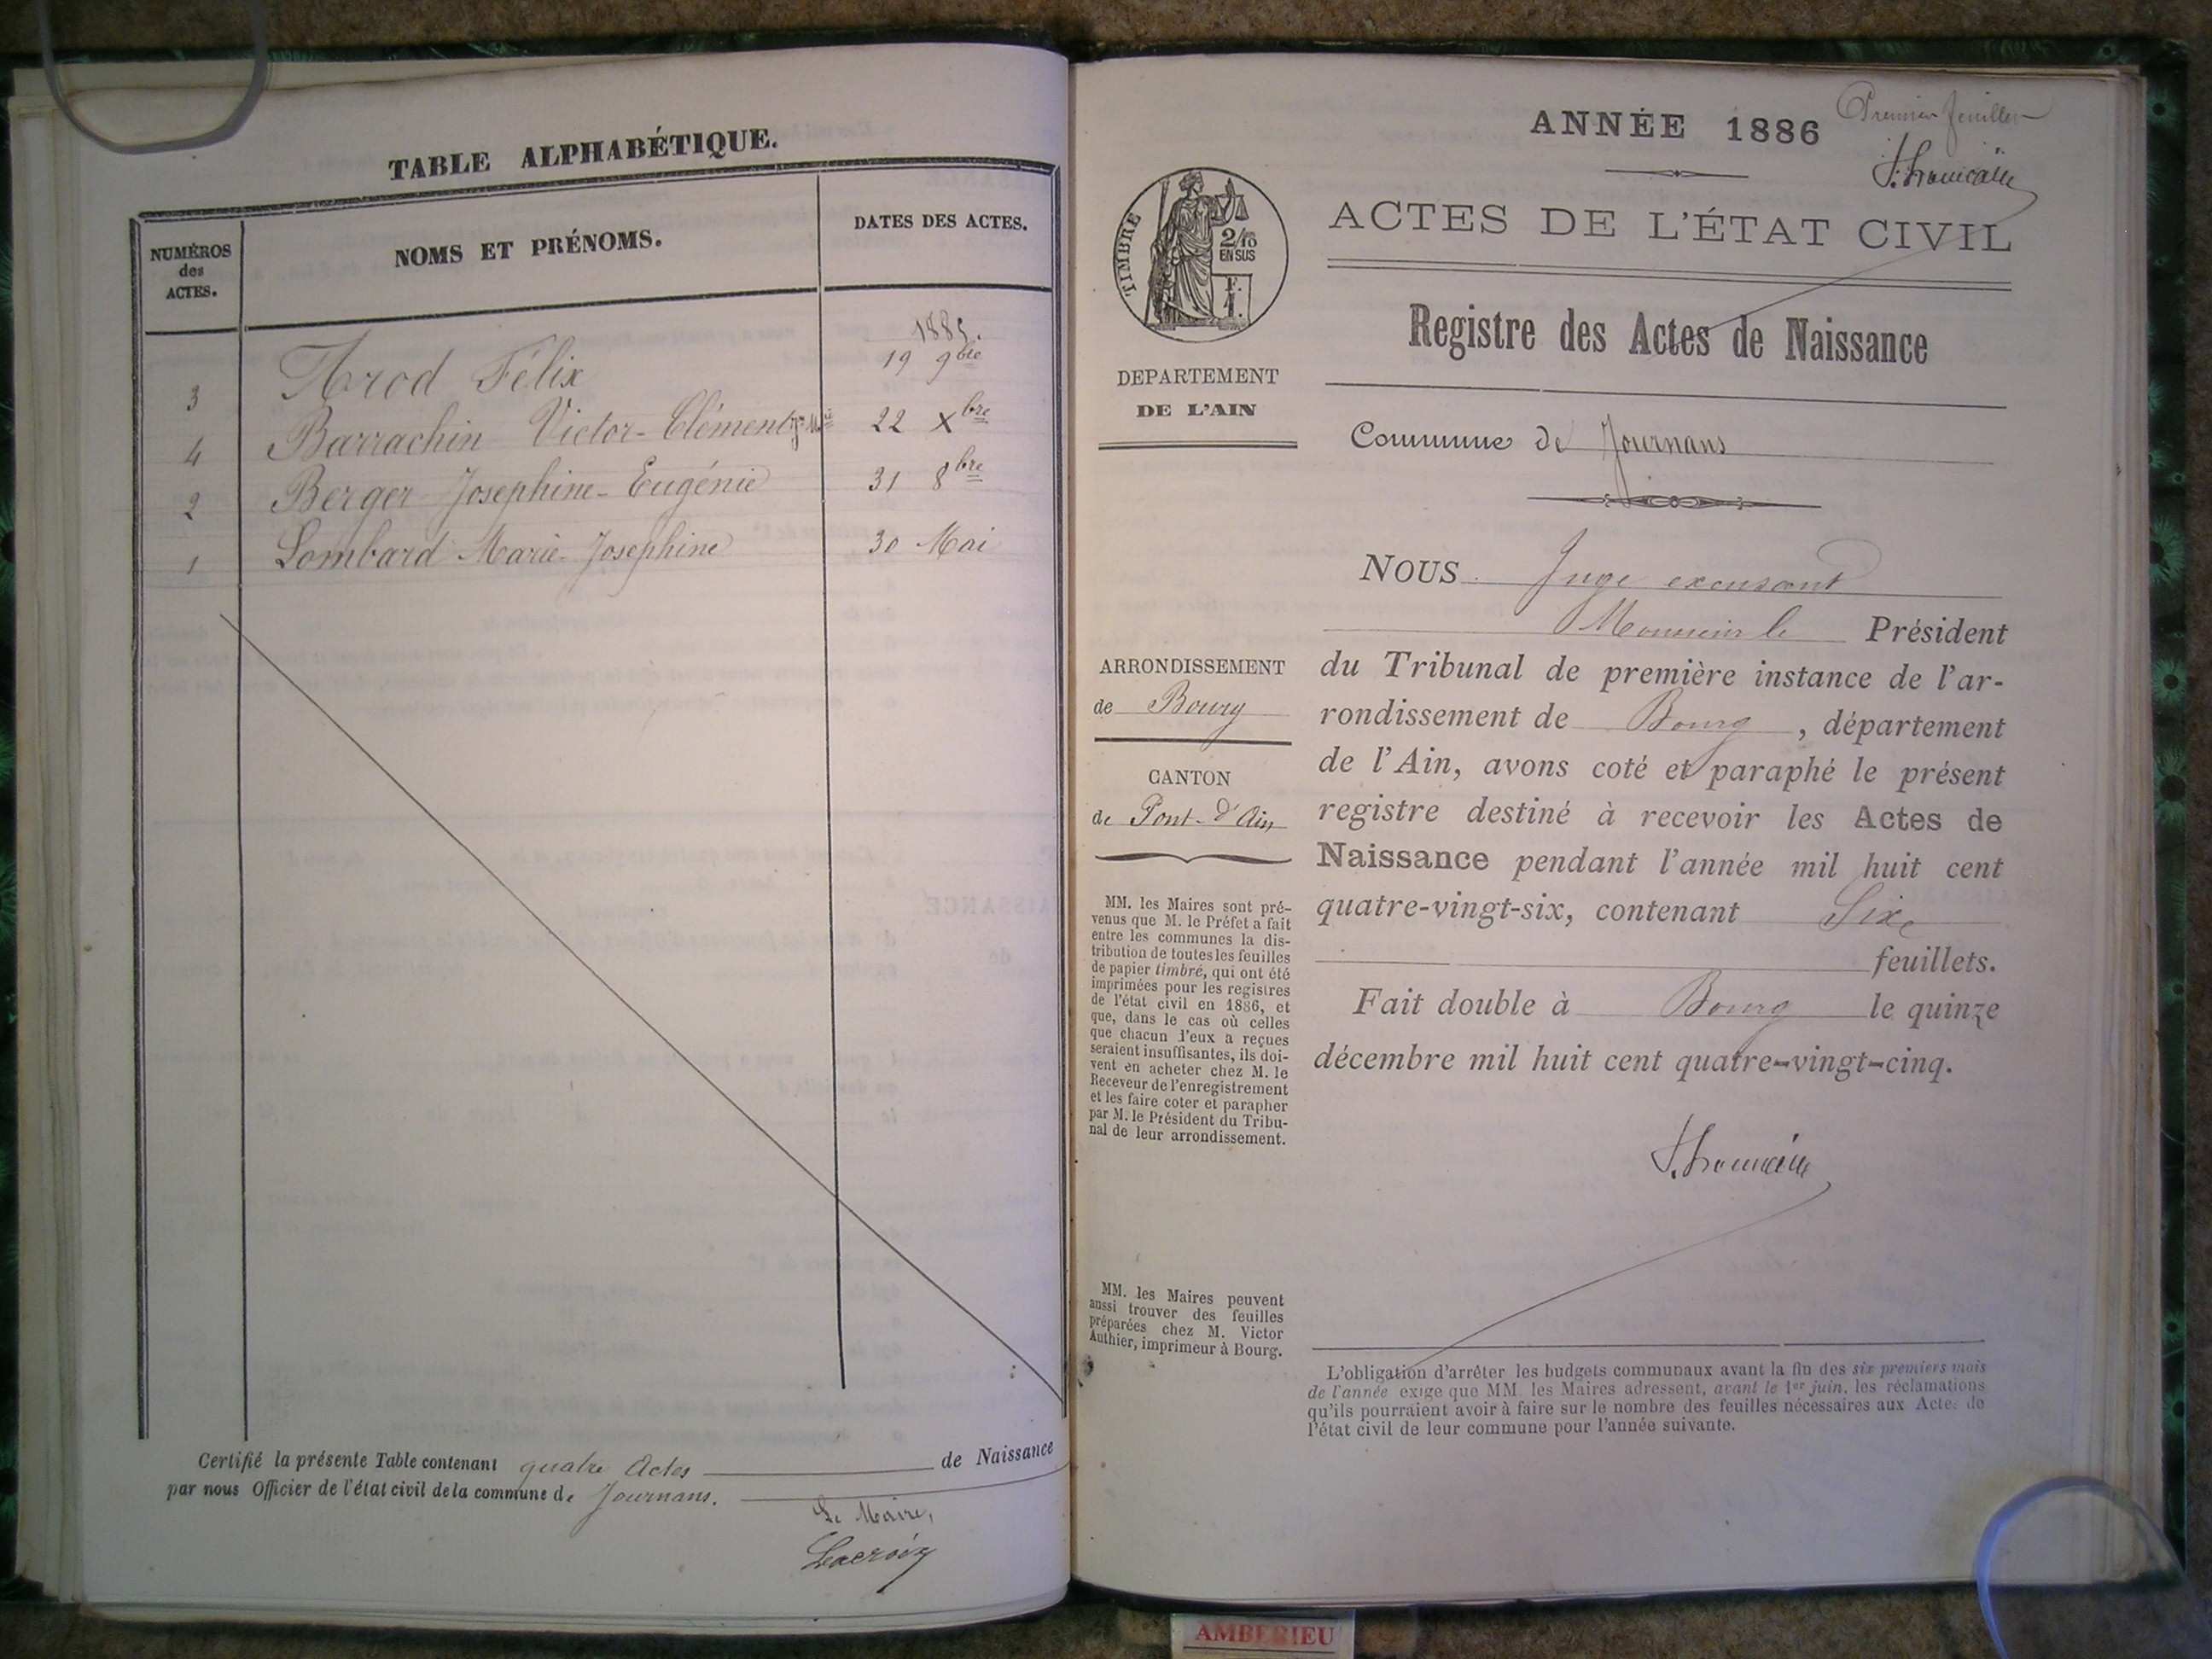 TABLE ALPHABÉTIQUE.
NUMÉROS
des
ACTES.
NOMS ET PRÉNOMS.
DATES DES ACTES.
1885.
3 Arod Félix 19 9bre
4 Barrachin Victor-Clément 22 Xbre
2 Berger Josephine-Eugénie 31 8bre
1 Lombard Marie-Josephine 30 Mai
Certifié la présente Table contenant quatre Actes de Naissance
par nous Officier de l'état civil de la commune de Journans.
Le Maire,
Lacroix
Premier feuillet
ANNÉE 1886
ACTES DE L'ÉTAT CIVIL
TIMBRE
2/10
EN SUS
F.
1.
Registre des Actes de Naissance
DEPARTEMENT
DE L'AIN
Commune de Journans
NOUS Juge excusant
Monsieur le Président
du Tribunal de première instance de l'ar-
rondissement de Bourg, département
de l'Ain, avons coté et paraphé le présent
registre destiné à recevoir les Actes de
Naissance pendant l'année mil huit cent
quatre-vingt-six, contenant Six
feuillets.
Fait double à Bourg le quinze
décembre mil huit cent quatre-vingt-cinq.
ARRONDISSEMENT
de Bourg
CANTON
de Pont-d'Ain
MM. les Maires sont pré-
venus que M. le Préfet a fait
entre les communes la dis-
tribution de toutes les feuilles
de papier timbré, qui ont été
imprimées pour les registres
de l'état civil en 1886, et
que, dans le cas où celles
que chacun d'eux a reçues
seraient insuffisantes, ils doi-
vent en acheter chez M. le
Receveur de l'enregistrement
et les faire coter et parapher
par M. le Président du Tribu-
nal de leur arrondissement.
MM. les Maires peuvent
aussi trouver des feuilles
préparées chez M. Victor
Authier, imprimeur à Bourg.
L'obligation d'arrêter les budgets communaux avant la fin des six premiers mois
de l'année exige que MM. les Maires adressent, avant le 1er juin, les réclamations
qu'ils pourraient avoir à faire sur le nombre des feuilles nécessaires aux Actes de
l'état civil de leur commune pour l'année suivante.
AMBERIEU